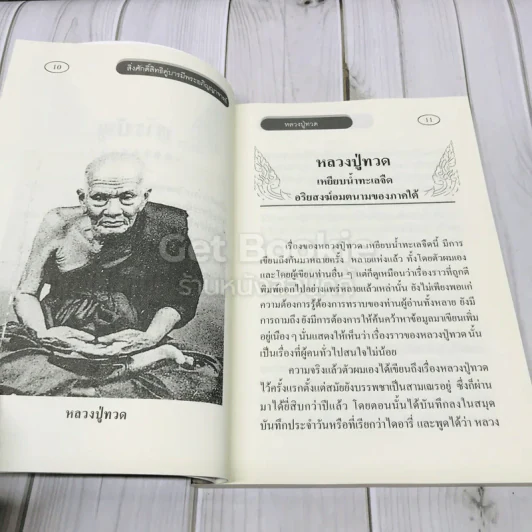 10
สิ่งศักดิ์สิทธิ์คู่บารมีพระอภิญญา
หลวงปู่ทวด
หลวงปู่ทวด
11
หลวงปู่ทวด
เหยียบน้ำทะเลจืด
อริยสงฆ์อมตนามของภาคใต้
เรื่องของหลวงปู่ทวด เหยียบน้ำทะเลจืดนี้ มีการ
เขียนถึงกันมาหลายครั้ง หลายแห่งแล้ว ทั้งโดยตัวผมเอง
และโดยผู้เขียนท่านอื่น ๆ แต่ก็ดูเหมือนว่าเรื่องราวที่ถูกตี
พิมพ์ออกไปอย่างแพร่หลายแล้วเหล่านั้น ยังไม่เพียงพอแก่
ความต้องการรู้ต้องการทราบของท่านผู้อ่านทั้งหลาย ยังมี
การถามถึงยังมีการต้องการให้ค้นคว้าหาข้อมูลมาเขียนเพิ่ม
อยู่เนือง ๆ นั่นแสดงให้เห็นว่า เรื่องราวของหลวงปู่ทวดนั้น
เป็นเรื่องที่ผู้คนทั่วไปสนใจไม่น้อย
ความจริงแล้วตัวผมเองได้เขียนถึงเรื่องหลวงปู่ทวด
ไว้ครั้งแรกตั้งแต่สมัยยังบรรพชาเป็นสามเณรอยู่ ซึ่งก็ผ่าน
มาได้ยี่สิบกว่าปีแล้ว โดยตอนนั้นได้บันทึกลงในสมุด
บันทึกประจำวันหรือที่เรียกว่าไดอารี่ และพูดได้ว่า หลวง
Get Bookie